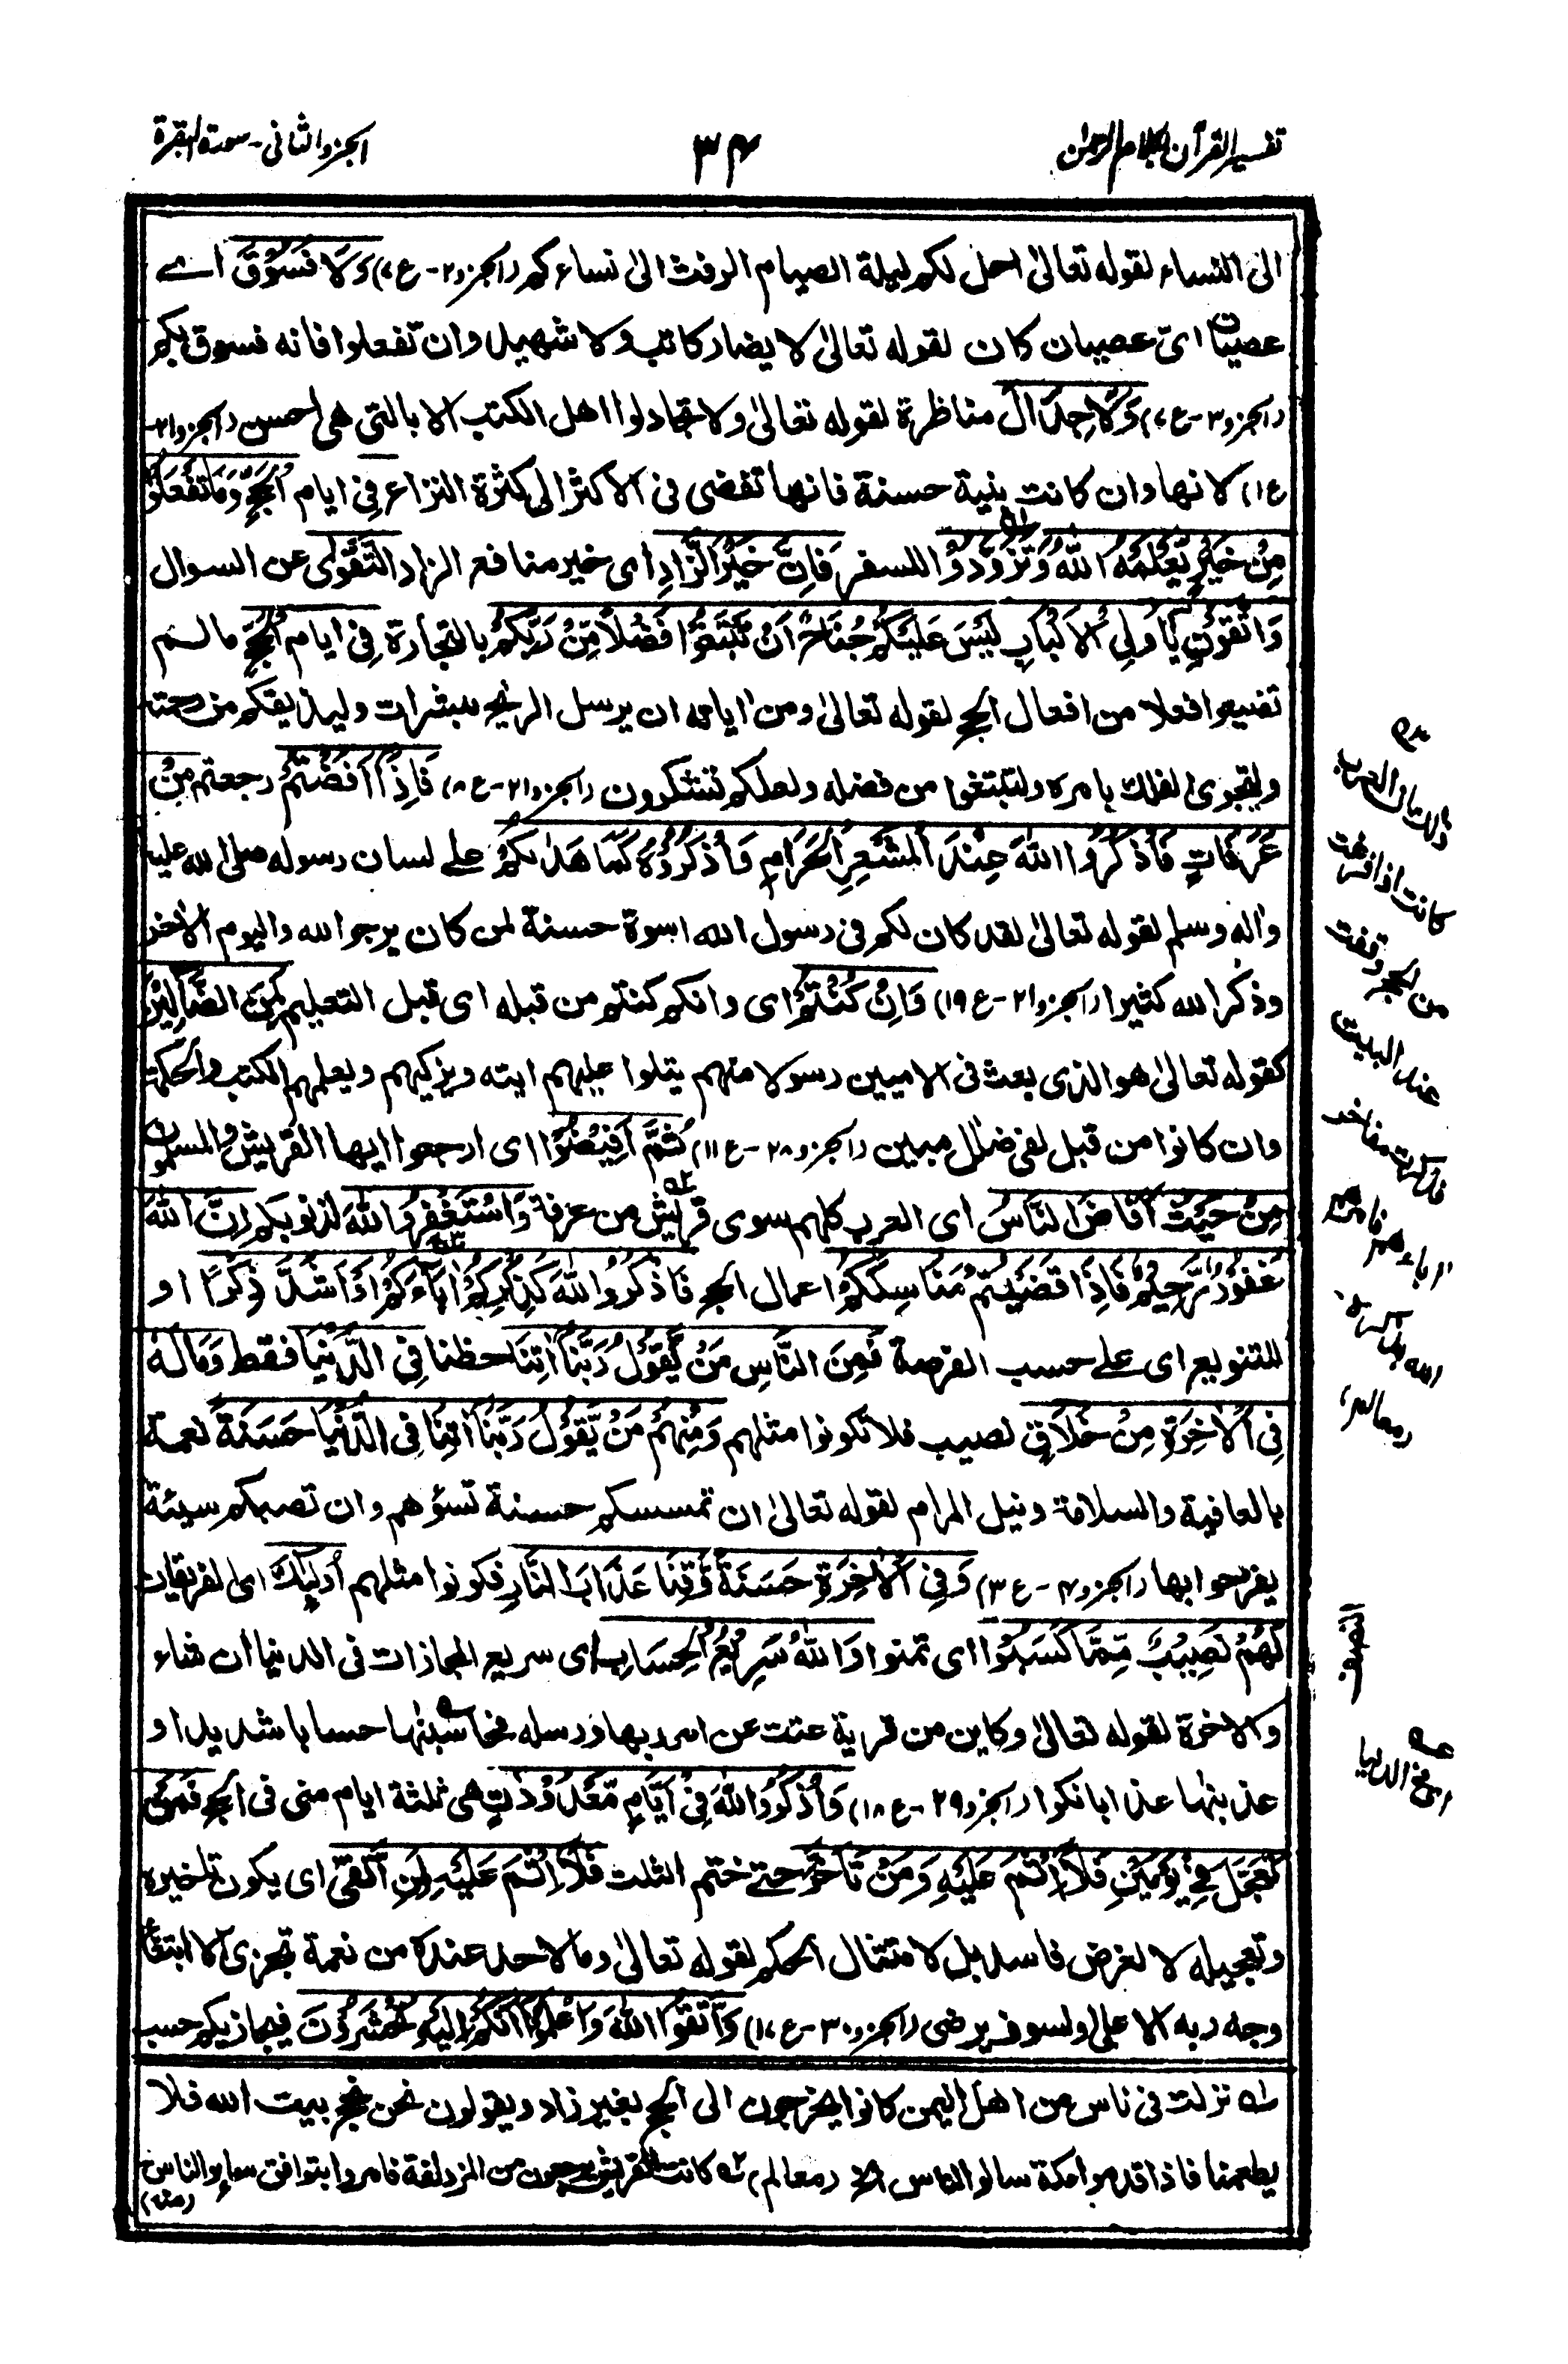 تفسير القرآن بكلام الرحمن
٣٤
الجزء الثانى - سورة البقرة
الى النساء لقوله تعالىٰ احل لكم ليلة الصيام الرفث الىٰ نساءكم (الجزو٢-ع٧) وَلَا فُسُوْقَ اے
عصيان اىّ عصيان كان لقوله تعالىٰ لا يضار كاتب ولا شهيد وان تفعلوا فانه فسوق بكم
(الجزو٣-ع٧) وَلَاجِدَالَ مناظرة لقوله تعالىٰ ولا تجادلوا اهل الكتب الا بالتى هى احسن (الجزو٢١-
ع١) لانها وان كانت بنية حسنة فانها تفضى فى الاكثر الى كثرة النزاع فِى ايام الْحَجِّ وَمَا تَفْعَلُوْا
مِنْ خَيْرٍ يَّعْلَمْهُ اللّٰهُ وَتَزَوَّدُوْا للسفر فَاِنَّ خَيْرَ الزَّادِ اى خير منافع الزاد التَّقْوٰى عن السوال
وَاتَّقُوْنِ يٰاُولِى الْاَلْبَابِ لَيْسَ عَلَيْكُمْ جُنَاحٌ اَنْ تَبْتَغُوْا فَضْلًا مِّنْ رَّبِّكُمْ بالتجارة فِى ايام الْحَجِّ مالم
تضيعوا فعلا من افعال الحج لقوله تعالىٰ ومن اياته ان يرسل الريٰح مبشرات وليذيقكم من رحمته
ولتجرى الفلك بامره ولتبتغوا من فضله ولعلكم تشكرون (الجزو٢١-ع٨) فَاِذَا اَفَضْتُمْ رجعتم مِنْ
عَرَفَاتٍ فَاذْكُرُوا اللّٰهَ عِنْدَ الْمَشْعَرِ الْحَرَامِ وَاذْكُرُوْهُ كَمَا هَدٰىكُمْ علے لسان رسوله صلى الله عليه
واٰله وسلم لقوله تعالىٰ لقد كان لكم فى رسول الله اسوة حسنة لمن كان يرجو الله واليوم الاخر
وذكر الله كثيرا (الجزو٢١-ع١٩) وَاِنْ كُنْتُمْ اى وانكم كنتم من قبله اى قبل التعليم لَمِنَ الضَّآلِّيْنَ
كقوله تعالىٰ هو الذى بعث فى الاميين رسولا منهم يتلوا عليهم ايته ويزكيهم ويعلمهم الكتب والحكمة
وان كانوا من قبل لفى ضلٰل مبين (الجزو٢٨-ع١١) ثُمَّ اَفِيْضُوْا اى ارجعوا ايها القريش والمسلمون
مِنْ حَيْثُ اَفَاضَ النَّاسُ اى العرب كلهم سوى قريش من عرفة وَاسْتَغْفِرُوا اللّٰهَ لذنوبكم اِنَّ اللّٰهَ
غَفُوْرٌ رَّحِيْمٌ فَاِذَا قَضَيْتُمْ مَنَاسِكَكُمْ اعمال الحج فَاذْكُرُوا اللّٰهَ كَذِكْرِكُمْ اٰبَآءَكُمْ اَوْ اَشَدَّ ذِكْرًا او
للتنويع اى علے حسب الفرصة فَمِنَ النَّاسِ مَنْ يَّقُوْلُ رَبَّنَا اٰتِنَا حظنا فِى الدُّنْيَا فقط وَمَالَهٗ
فِى الْاٰخِرَةِ مِنْ خَلَاقٍ نصيب فلا تكونوا مثلهم وَمِنْهُمْ مَنْ يَّقُوْلُ رَبَّنَا اٰتِنَا فِى الدُّنْيَا حَسَنَةً نعمة
بالعافية والسلامة ونيل المرام لقوله تعالىٰ ان تمسسكم حسنة تسؤهم وان تصبكم سيئة
يفرحوا بها (الجزو٤-ع٣) وَفِى الْاٰخِرَةِ حَسَنَةً وَّقِنَا عَذَابَ النَّارِ فكونوا مثلهم اُولٰٓئِكَ اى الفريقان
لَهُمْ نَصِيْبٌ مِّمَّا كَسَبُوْا اى تمنوا وَاللّٰهُ سَرِيْعُ الْحِسَابِ اى سريع المجازات فى الدنيا ان شاء
والاخرة لقوله تعالىٰ وكاين من قرية عتت عن امر ربها ورسله فحاسبنٰها حسابا شديدا و
عذبنٰها عذابا نكرا (الجزو٢٩-ع١٨) وَاذْكُرُوا اللّٰهَ فِىْ اَيَّامٍ مَّعْدُوْدٰتٍ هى ثلثة ايام منى فى الحج فَمَنْ
تَعَجَّلَ فِىْ يَوْمَيْنِ فَلَا اِثْمَ عَلَيْهِ وَمَنْ تَاَخَّرَ حتے ختم الثلث فَلَا اِثْمَ عَلَيْهِ لِمَنِ اتَّقٰى اى يكون تاخيره
وتعجيله لا لغرض فاسد بل لامتثال الحكم لقوله تعالىٰ وما لاحد عنده من نعمة تجزى الا ابتغاء
وجه ربه الاعلى ولسوف يرضى (الجزو٣٠-ع١٧) وَاتَّقُوا اللّٰهَ وَاعْلَمُوْا اَنَّكُمْ اِلَيْهِ تُحْشَرُوْنَ فيجازيكم حسب
له نزلت فى ناس من اهل اليمن كانوا يخرجون الى الحج بغير زاد ويقولون نحن نحج بيت الله فلا
يطعمنا فاذا قدموا مكة سالوا الناس الخ (معالم) ٢ه كانت القريش يرجعون من المزدلفة فامروا بتوافق سائر الناس
(منه)
٣ه
ذلك بان العرب
كانت اذا فرغت
من الحج وقفت
عند البيت
فذكرت مفاخر
اٰباءهم فامرهم
الله
(معالم)
النصف
عه
اى فى الدنيا